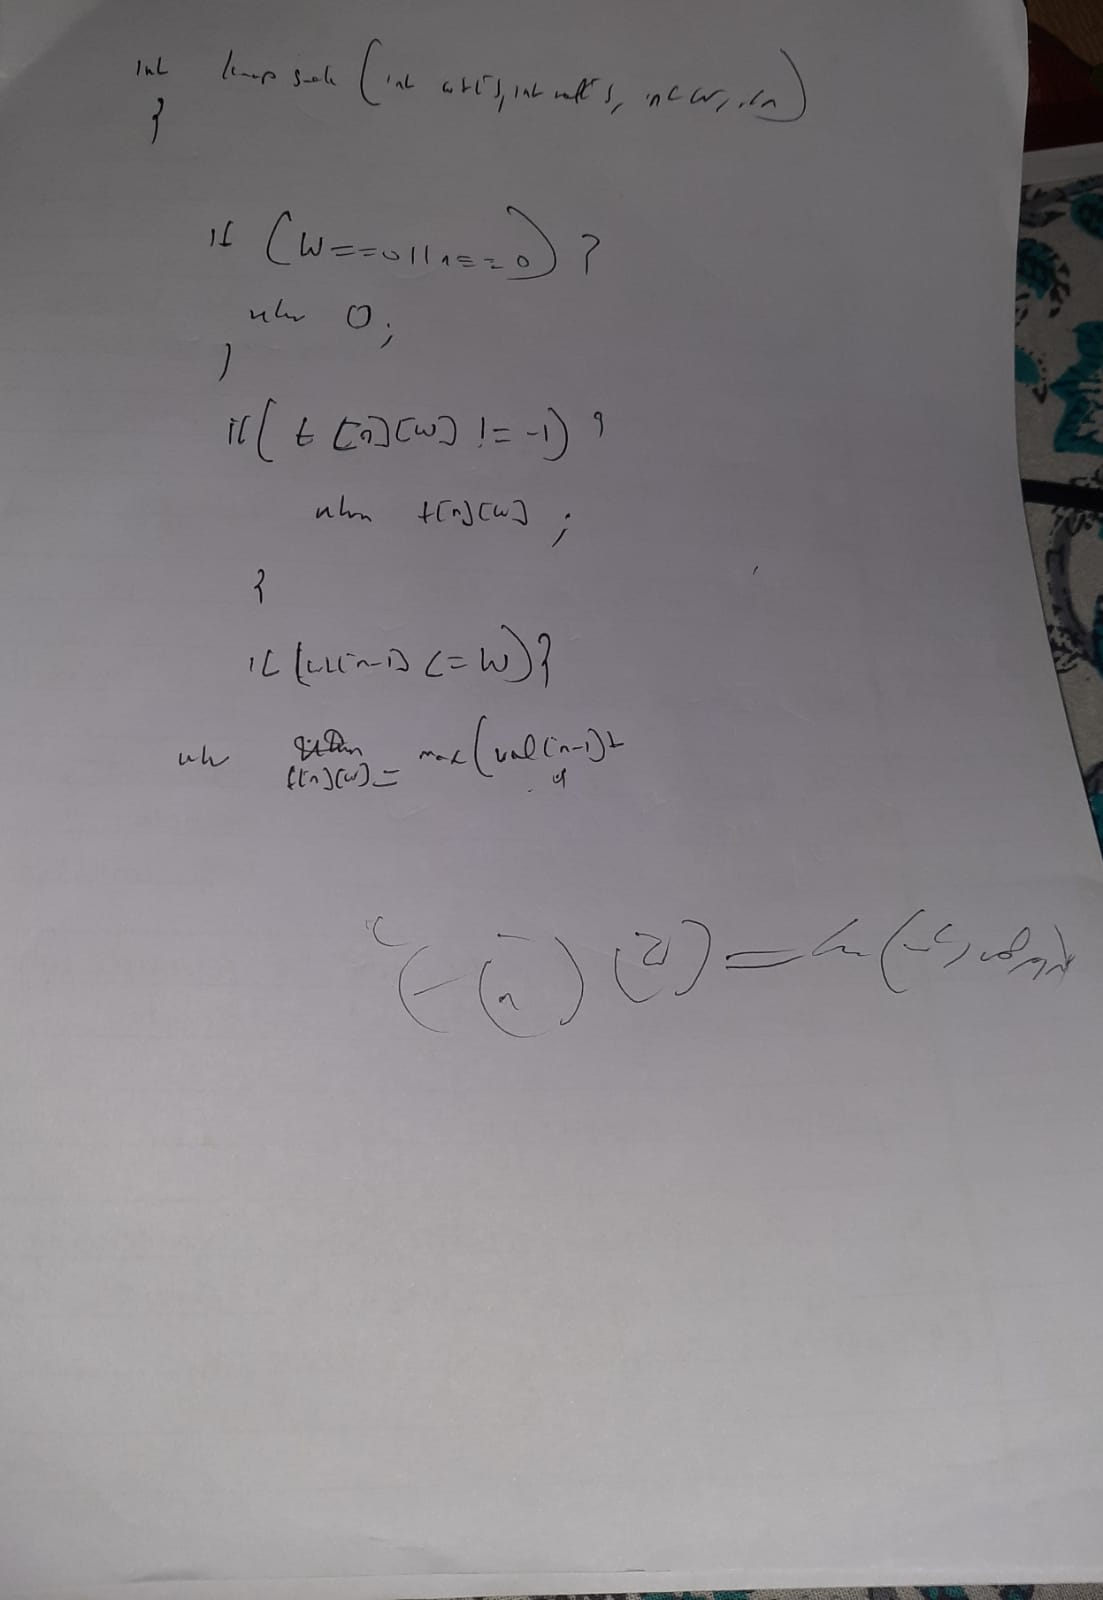 int knapsack (int wt[], int val[], int w, int n)
{
if (w==0||n==0) {
return 0;
}
if( t [n][w] != -1) {
return t[n][w] ;
}
if (wt[n-1] <= W) {
return t[n][w] = max (val[n-1]+